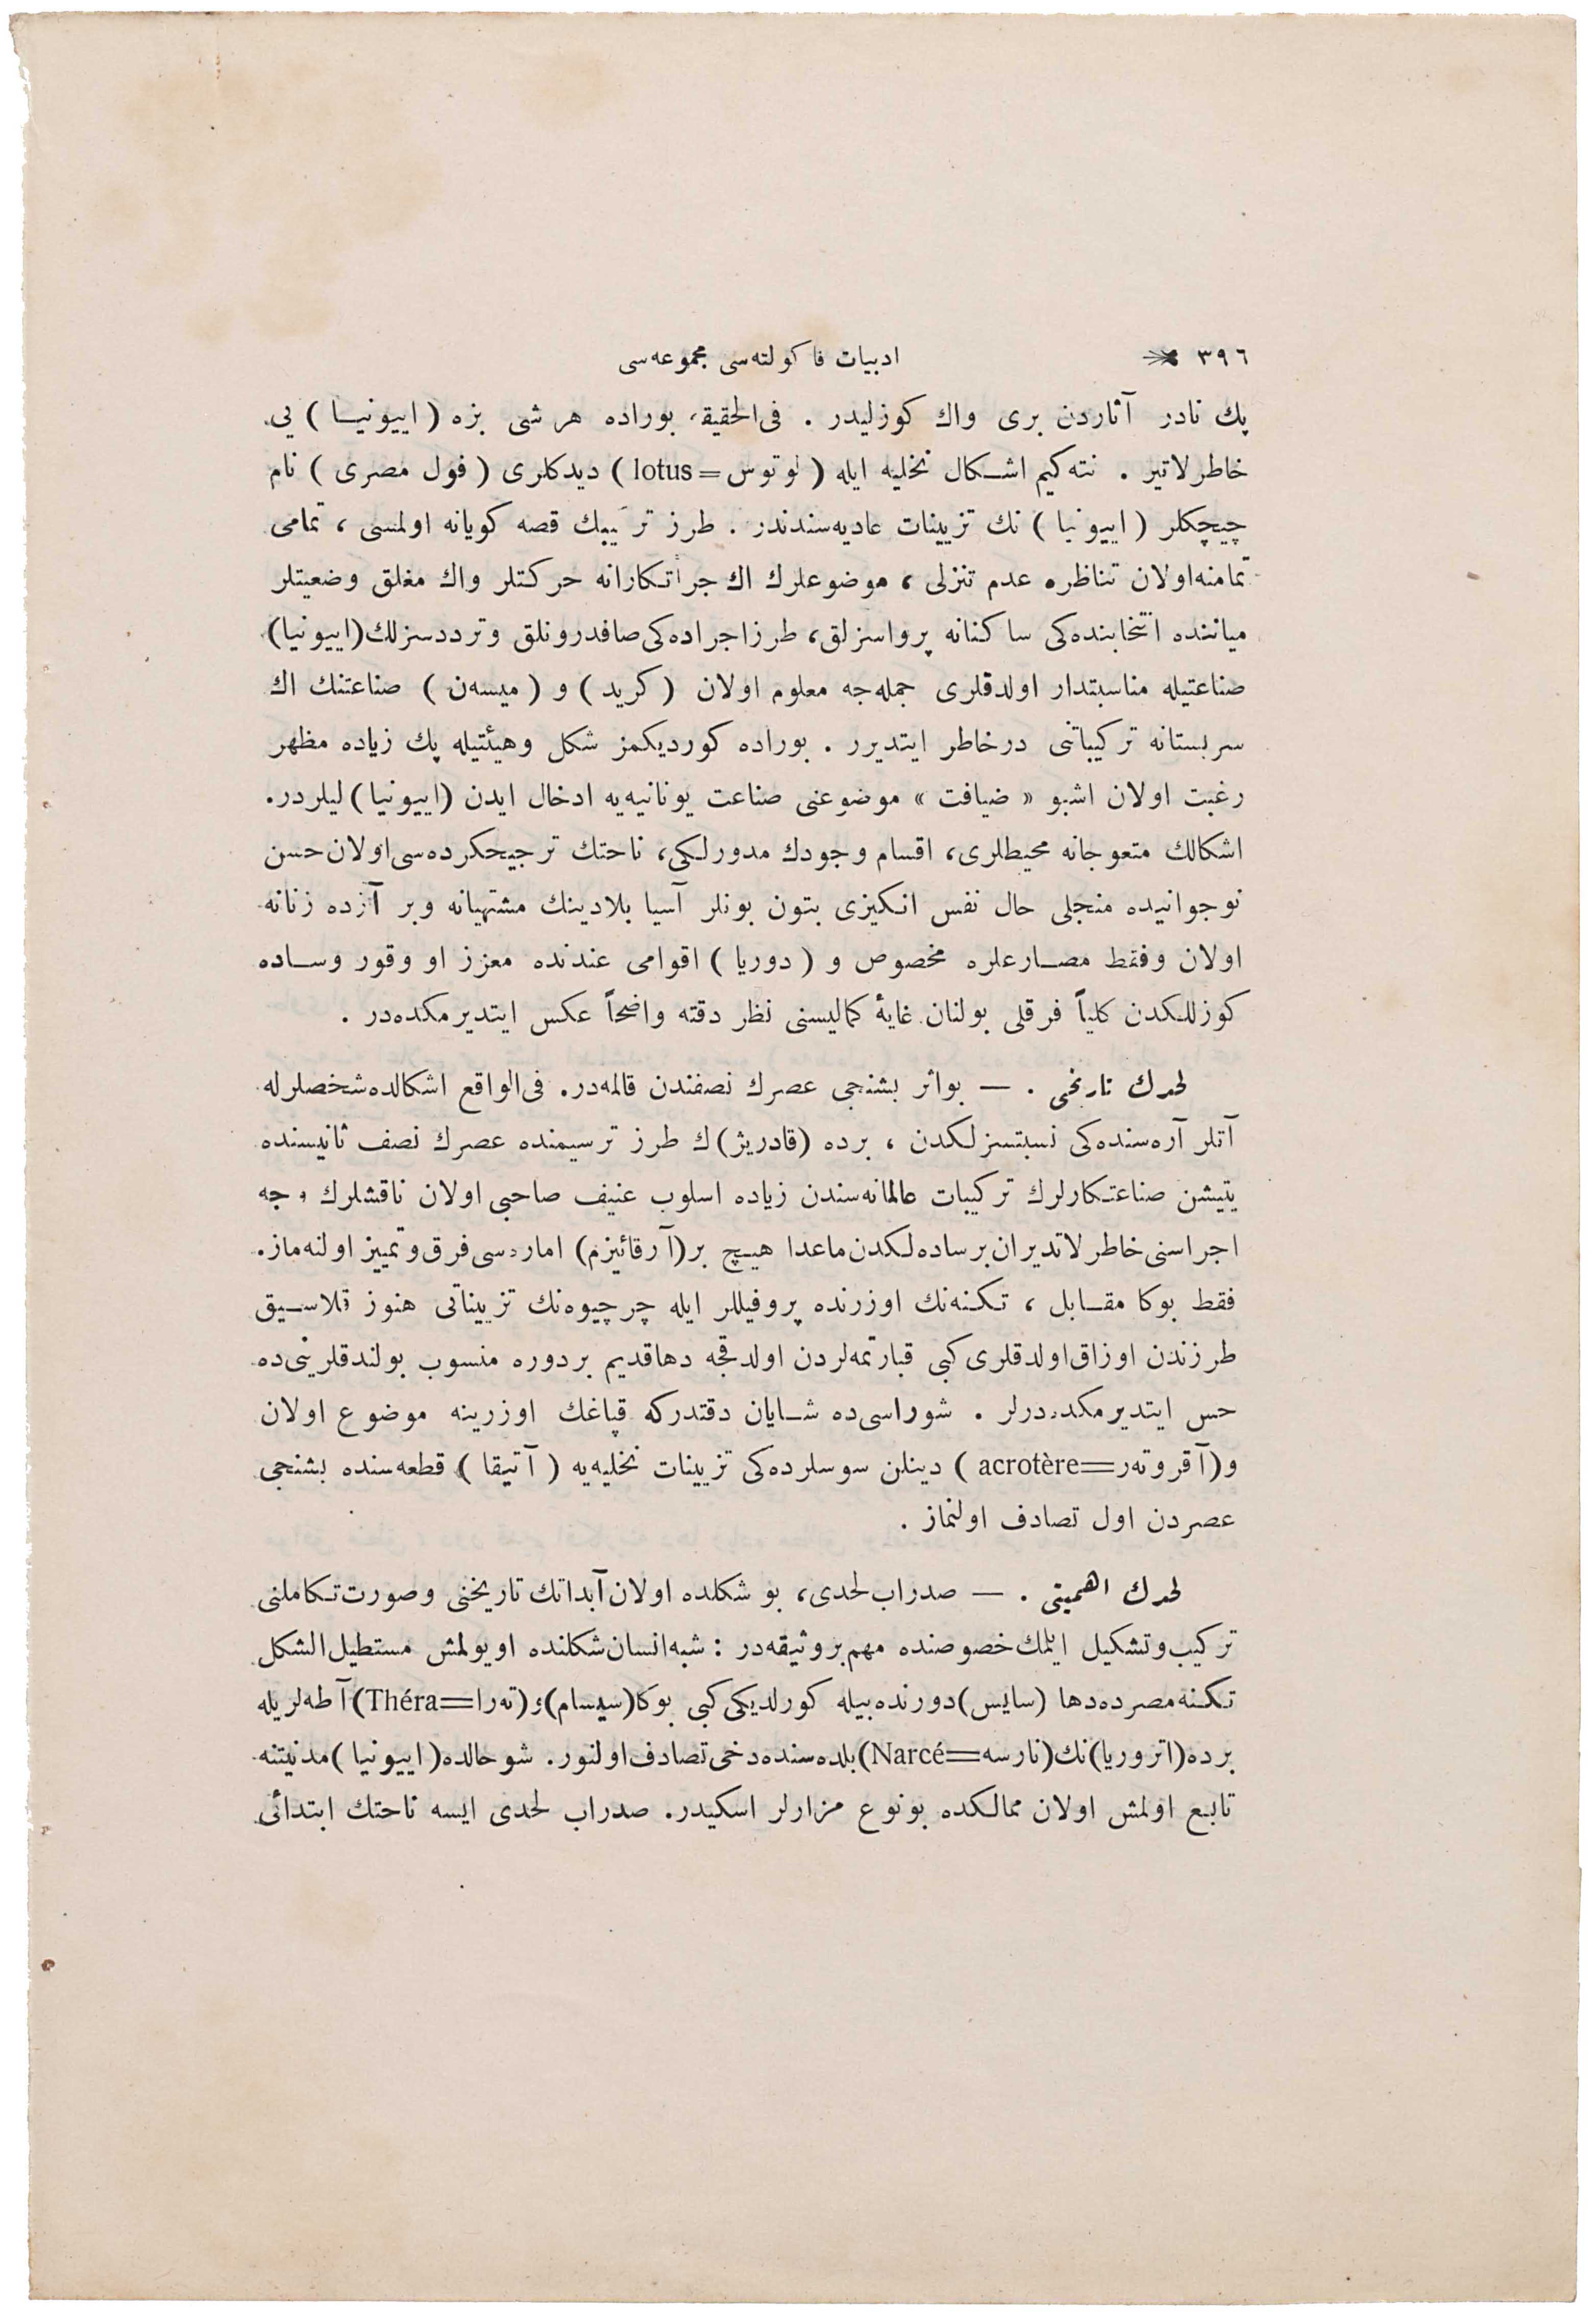 ٣٩٦ ادبيات فاكولته‌سی مجموعه‌سی
پك نادر آثاردن بری واك كوزليدر . فی‌الحقيقه بوراده هر شی بزه ( اييونيا ) یی
خاطرلاتير . نته‌كيم اشكال نخليه ايله ( لوتوس = lotus ) ديدكلری ( فول مصری ) نام
چيچكلر ( اييونيا ) نك تزيينات عاديه‌سندندر . طرز ترتيبك قصه كويانه اولمسی ، تمامی
تمامنه اولان تناظره عدم تنزلی ، موضوعلرك اك جرأتكارانه حركتلر واك مغلق وضعيتلر
مياننده انتخابنده‌كی ساكنانه پرواسزلق، طرز اجراده‌كی صافدرونلق وترددسزلك (اييونيا)
صناعتيله مناسبتدار اولدقلری جمله‌جه معلوم اولان ( كريد ) و ( ميسه‌ن ) صناعتنك اك
سربستانه تركيباتنی درخاطر ايتديرر . بوراده كورديكمز شكل وهيئتيله پك زياده مظهر
رغبت اولان اشبو « ضيافت » موضوعنی صناعت يونانيه‌يه ادخال ايدن (اييونيا) ليلردر.
اشكالك متعوجانه محيطلری، اقسام وجودك مدورلكی، ناحتك ترجيحكرده‌سی اولان حسن
نوجوانيده منجلی حال نفس انكيزی بتون بونلر آسيا بلادينك مشتهيانه وبر آزده زنانه
اولان وفقط مصارعلره مخصوص و ( دوريا ) اقوامی عندنده معزز او وقور وساده
كوزللكدن كلياً فرقلی بولنان غايهٔ كماليسنی نظر دقته واضحاً عكس ايتديرمكده‌در .
لحدك تاريخی . — بواثر بشنجی عصرك نصفندن قالمه‌در. فی‌الواقع اشكالده شخصلرله
آتلر آره‌سنده‌كی نسبتسزلكدن ، برده (قادريژ)ك طرز ترسيمنده عصرك نصف ثانيسنده
يتيشن صناعتكارلرك تركيبات عالمانه‌سندن زياده اسلوب عنيف صاحبی اولان ناقشلرك وجه
اجراسنی خاطرلاتديران برساده‌لكدن ماعدا هيچ بر (آرقائيزم) اماره‌سی فرق وتمييز اولنه‌ماز.
فقط بوكا مقابل ، تكنه‌نك اوزرنده پروفيللر ايله چرچيوه‌نك تزييناتی هنوز قلاسيق
طرزندن اوزاق اولدقلری كبی قبارتمه‌لردن اولدقجه دها قديم بر دوره منسوب بولندقلرينی‌ده
حس ايتديرمكده‌درلر . شوراسی‌ده شايان دقتدركه قپاغك اوزرينه موضوع اولان
و(آقروته‌ر=acrotère ) دينلن سوسلرده‌كی تزيينات نخليه‌يه ( آتيقا ) قطعه‌سنده بشنجی
عصردن اول تصادف اولنماز .
لحدك اهميتی . — صدراب لحدی، بو شكلده اولان آبداتك تاريخنی وصورت تكاملنی
تركيب وتشكيل ايلمك خصوصنده مهم بر وثيقه‌در : شبه انسان شكلنده اويولمش مستطيل الشكل
تكنه مصرده دها (سايس) دورنده بيله كورلديكی كبی بوكا (سيسام) و (ته‌را=Théra) آطه‌لريله
برده (اتروريا) نك (نارسه=Narcé) بلده‌سنده دخی تصادف اولنور. شو حالده (اييونيا) مدنيتنه
تابع اولمش اولان ممالكده بو نوع مزارلر اسكيدر. صدراب لحدی ايسه ناحتك ابتدائی